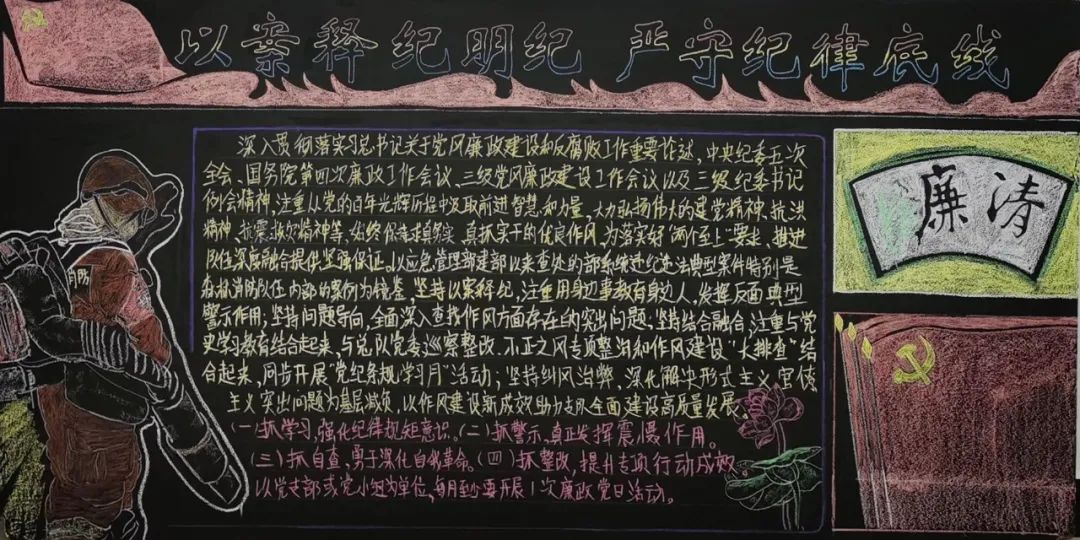 以案释纪明纪 严守纪律底线
深入贯彻落实习总书记关于党风廉政建设和反腐败工作重要论述,中央纪委五次
全会、国务院第四次廉政工作会议、三级党风廉政建设工作会议以及三级纪委书记
例会精神,注重从党的百年光辉历程中汲取前进智慧和力量,大力弘扬伟大的建党精神、抗洪
精神、抗震救灾精神等,始终保持求真务实、真抓实干的优良作风,为落实好“两个至上”要求、推进
队伍深度融合提供坚强保证。以应急管理部建部以来查处的部系统违纪违法典型案件特别是
森林消防队伍内部的案例为镜鉴,坚持以案释纪,注重用身边事教育身边人,发挥反面典型
警示作用;坚持问题导向,全面深入查找作风方面存在的突出问题;坚持结合融合,注重与党
史学习教育结合起来,与总队党委巡察整改、不正之风专项整治和作风建设“大排查”结
合起来,同步开展“党纪条规学习月”活动;坚持纠风治弊,深化解决形式主义官僚
主义突出问题为基层减负,以作风建设新成效助力支队全面建设高质量发展。
(一)抓学习,强化纪律规矩意识。(二)抓警示,真正发挥震慑作用。
(三)抓自查,勇于深化自我革命。(四)抓整改,提升专项行动成效
以党支部或党小组为单位,每月至少要开展1次廉政党日活动。
廉清
消防